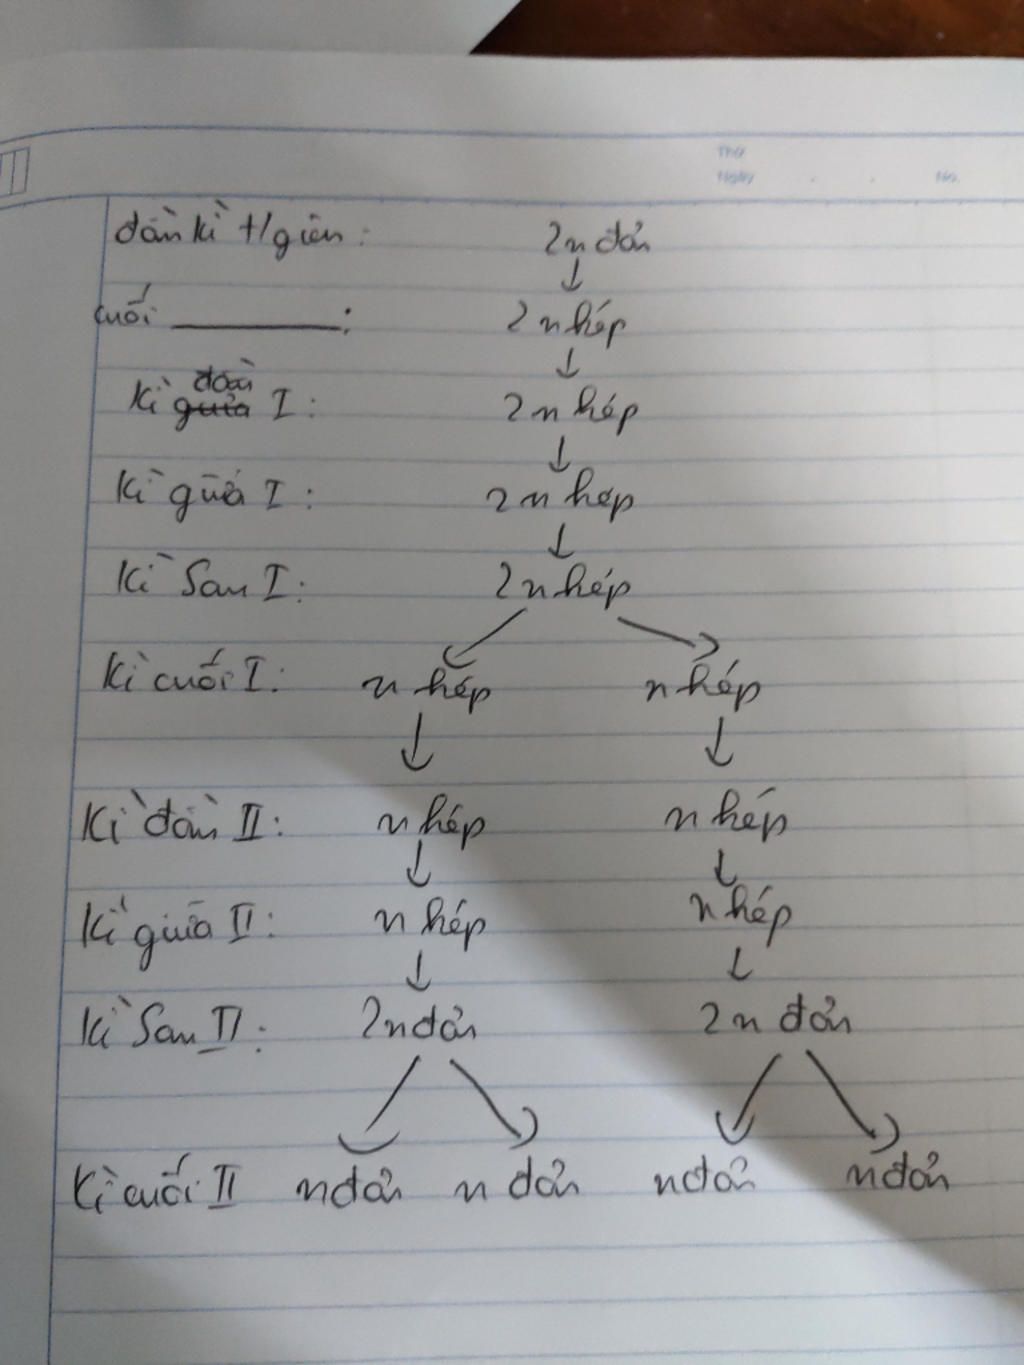 Thứ
Ngày . . No.
đầu kì t/gian: 2n đơn
↓
cuối ————: 2n kép
↓
Kì đầu I: 2n kép
↓
Kì giữa I: 2n kép
↓
Kì Sau I: 2n kép
Kì cuối I: n kép n kép
↓ ↓
Kì đầu II: n kép n kép
↓ ↓
Kì giữa II: n kép n kép
↓ ↓
Kì Sau II: 2n đơn 2n đơn
Kì cuối II n đơn n đơn n đơn n đơn